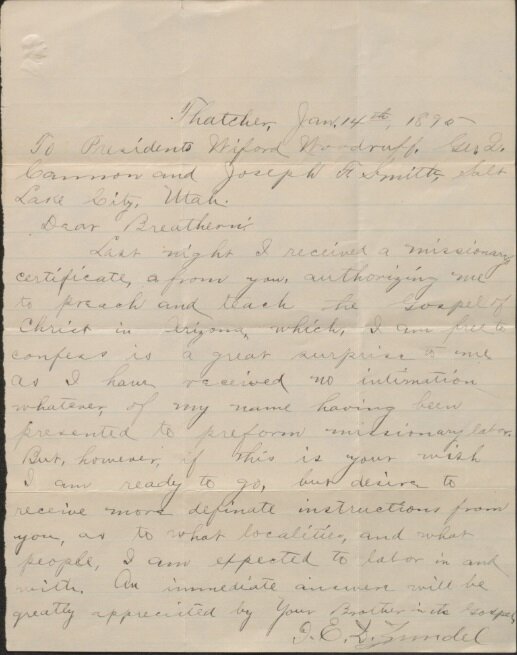 Thatcher, Jan. 14th, 1895
To Presidents Wiford Woodruff, Geo. Q.
Cannon and Joseph F. Smith, Salt
Lake City, Utah.
Dear Breathern:
Last night I received a missionary
certificate, a from you, authorizing me
to preach and teach the Gospel of
Christ in Arizona, which, I am free to
confess is a great surprise to me
as I have received no intimation
whatever, of my name having been
presented to preform missionary labor.
But, however, if this is your wish
I am ready to go, but desire to
receive more definate instructions from
you, as to what localities, and what
people, I am expected to labor in and
with. An immediate answere will be
greatly appreciated by Your Brother in the Gospel,
I. E. D.